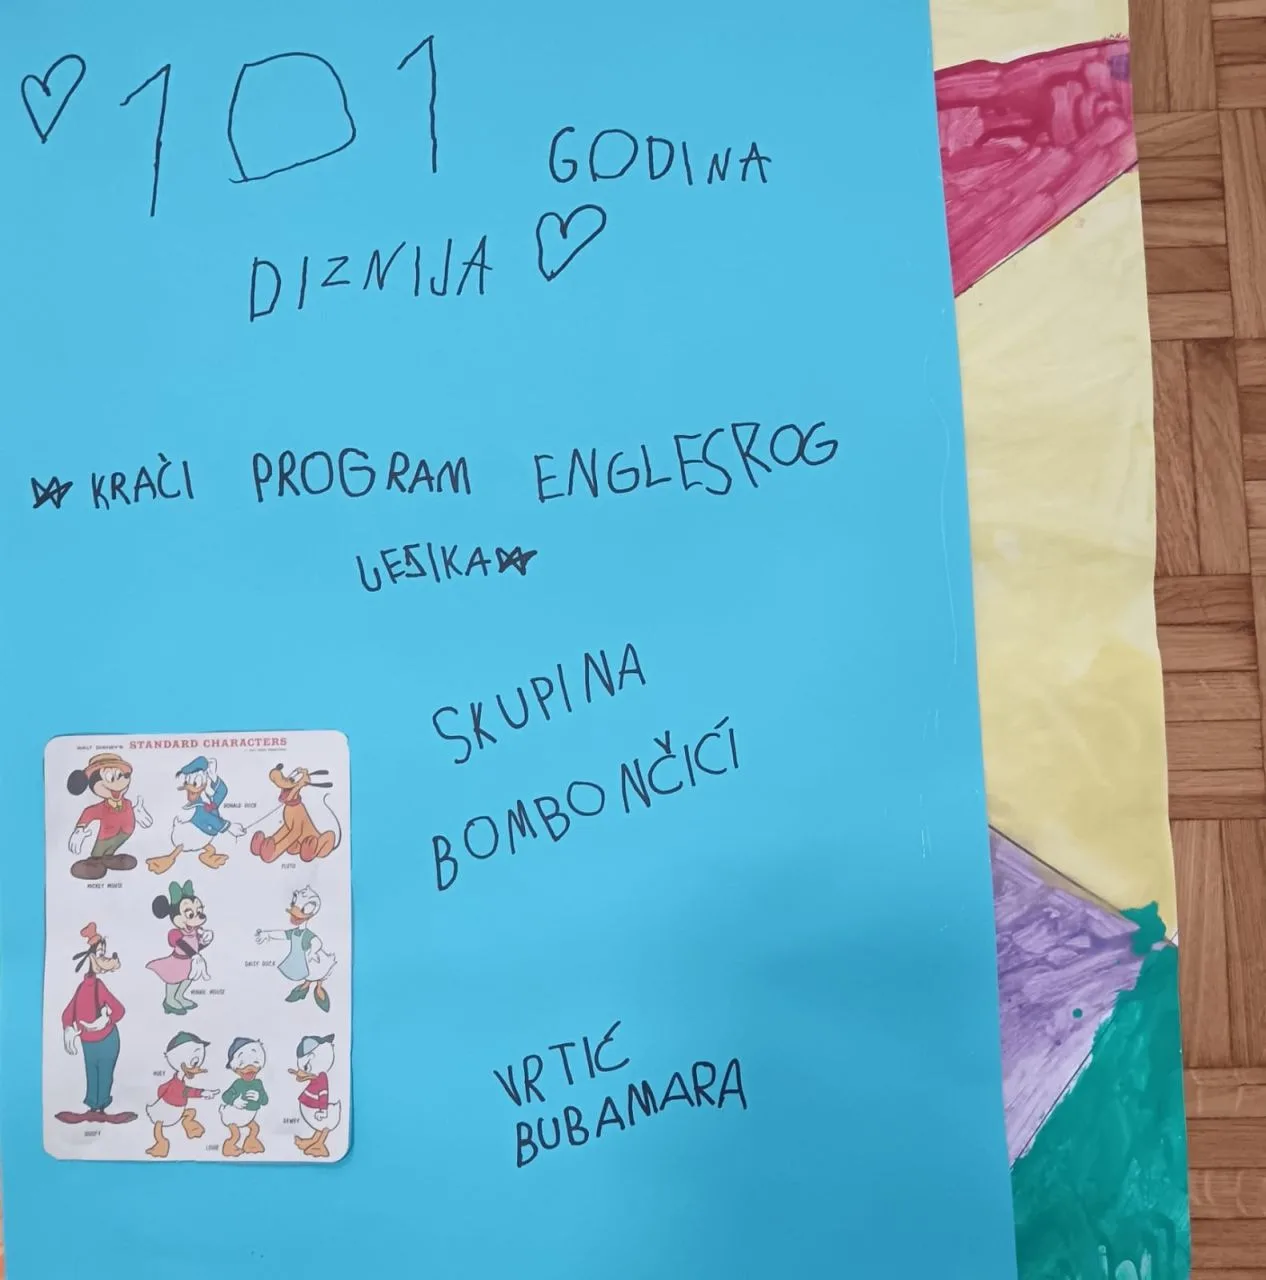 101 GODINA
DIZNIJA
KRAČI PROGRAM ENGLESKOG
JESIKA
SKUPINA
BOMBONČIĆI
VRTIĆ
BUBAMARA
WALT DISNEY'S STANDARD CHARACTERS
MICKEY MOUSE
DONALD DUCK
PLUTO
MINNIE MOUSE
DAISY DUCK
GOOFY
HUEY
LOUIE
DEWEY